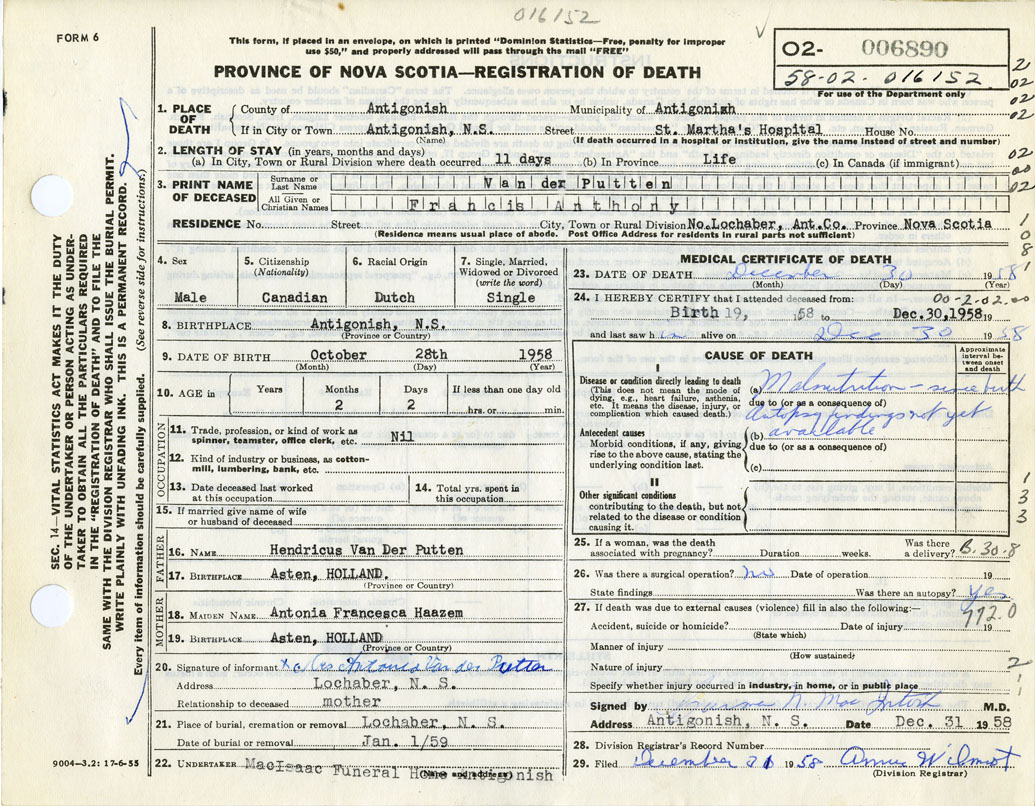 016152
FORM 6
This form, if placed in an envelope, on which is printed "Dominion Statistics—Free, penalty for improper
use $50," and properly addressed will pass through the mail "FREE"
PROVINCE OF NOVA SCOTIA—REGISTRATION OF DEATH
02- 006890
58-02- 016152
For use of the Department only
2
02
02
02
00
02
1
0
8
1
1
3
3
2
1
1
SEC. 14—VITAL STATISTICS ACT MAKES IT THE DUTY
OF THE UNDERTAKER OR PERSON ACTING AS UNDER-
TAKER TO OBTAIN ALL THE PARTICULARS REQUIRED
IN THE "REGISTRATION OF DEATH" AND TO FILE THE
SAME WITH THE DIVISION REGISTRAR WHO SHALL ISSUE THE BURIAL PERMIT.
WRITE PLAINLY WITH UNFADING INK. THIS IS A PERMANENT RECORD.
Every item of information should be carefully supplied. (See reverse side for instructions.)
1. PLACE OF DEATH
County of Antigonish Municipality of Antigonish
If in City or Town Antigonish, N.S. Street St. Martha's Hospital House No.
(Name) (If death occurred in a hospital or institution, give the name instead of street and number)
2. LENGTH OF STAY (in years, months and days)
(a) In City, Town or Rural Division where death occurred 11 days (b) In Province Life (c) In Canada (if immigrant)
3. PRINT NAME OF DECEASED
Surname or Last Name Van der Putten
All Given or Christian Names Francis Anthony
RESIDENCE No. Street City, Town or Rural Division No.Lochaber, Ant.Co. Province Nova Scotia
(Residence means usual place of abode. Post Office Address for residents in rural parts not sufficient)
4. Sex
Male
5. Citizenship
(Nationality)
Canadian
6. Racial Origin
Dutch
7. Single, Married,
Widowed or Divorced
(write the word)
Single
8. BIRTHPLACE Antigonish, N.S.
(Province or Country)
9. DATE OF BIRTH October 28th 1958
(Month) (Day) (Year)
10. AGE in
Years Months Days If less than one day old
2 2 hrs. or min.
OCCUPATION
11. Trade, profession, or kind of work as
spinner, teamster, office clerk, etc. Nil
12. Kind of industry or business, as cotton-
mill, lumbering, bank, etc.
13. Date deceased last worked
at this occupation
14. Total yrs. spent in
this occupation
15. If married give name of wife
or husband of deceased
FATHER
16. NAME Hendricus Van Der Putten
17. BIRTHPLACE Asten, HOLLAND.
(Province or Country)
MOTHER
18. MAIDEN NAME Antonia Francesca Haazem
19. BIRTHPLACE Asten, HOLLAND
(Province or Country)
20. Signature of informant x Mrs Antonia Van der Putten
Address Lochaber, N. S.
Relationship to deceased mother
21. Place of burial, cremation or removal Lochaber, N. S.
Date of burial or removal Jan. 1/59
22. UNDERTAKER MacIsaac Funeral Home Antigonish
(Name and address)
9004—3.2: 17-6-55
MEDICAL CERTIFICATE OF DEATH
23. DATE OF DEATH December 30 1958
(Month) (Day) (Year)
24. I HEREBY CERTIFY that I attended deceased from: 00-2-02-00
Birth 19, 58 to Dec.30,1958 19
and last saw him alive on Dec 30 1958
CAUSE OF DEATH
Approximate
interval be-
tween onset
and death
I
Disease or condition directly leading to death
(This does not mean the mode of
dying, e.g., heart failure, asthenia,
etc. It means the disease, injury, or
complication which caused death.)
(a) Malnutrition - since birth
due to (or as a consequence of)
Autopsy findings not yet
available
Antecedent causes
Morbid conditions, if any, giving
rise to the above cause, stating the
underlying condition last.
(b)
due to (or as a consequence of)
(c)
II
Other significant conditions
contributing to the death, but not
related to the disease or condition
causing it.
25. If a woman, was the death
associated with pregnancy? Duration weeks.
Was there
a delivery? B.30-8
26. Was there a surgical operation? no Date of operation 19
State findings Was there an autopsy? Yes
27. If death was due to external causes (violence) fill in also the following:—
772.0
Accident, suicide or homicide? Date of injury 19
(State which)
Manner of injury
(How sustained)
Nature of injury
Specify whether injury occurred in industry, in home, or in public place
Signed by N. MacIntosh M.D.
Address Antigonish, N. S. Date Dec. 31 1958
28. Division Registrar's Record Number
29. Filed December 31 1958 Annie Wilmot
(Division Registrar)